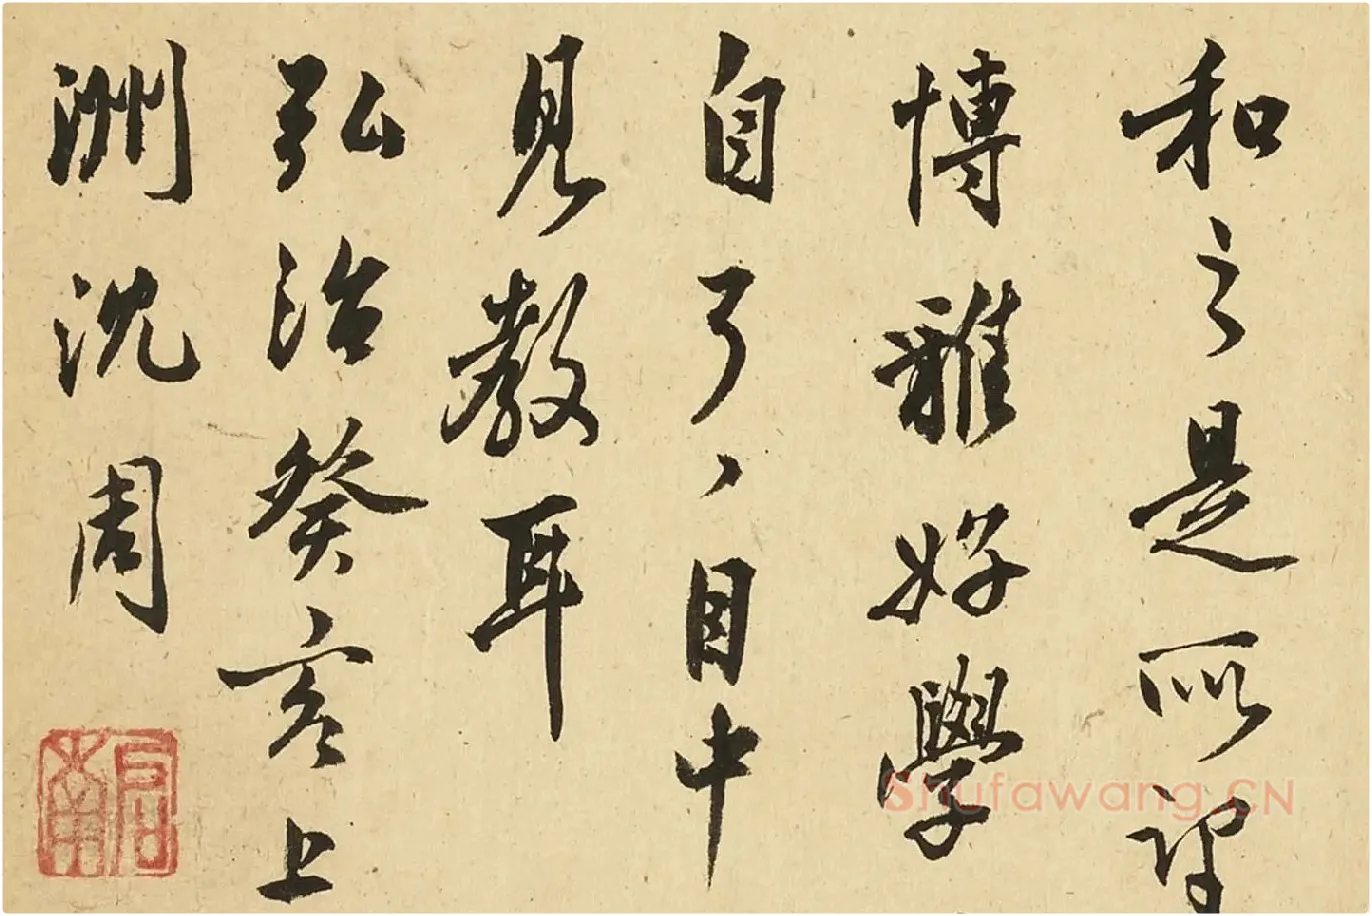 和之是所
博雅好學
自了、目中
見教耳
弘治癸亥上
洲沈周
启南
Shufawang.CN